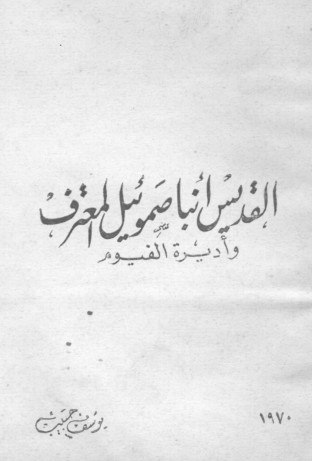 القديس أنبا صموئيل المعترف
وأديرة الفيوم
١٩٧٠
يوسف حبيب